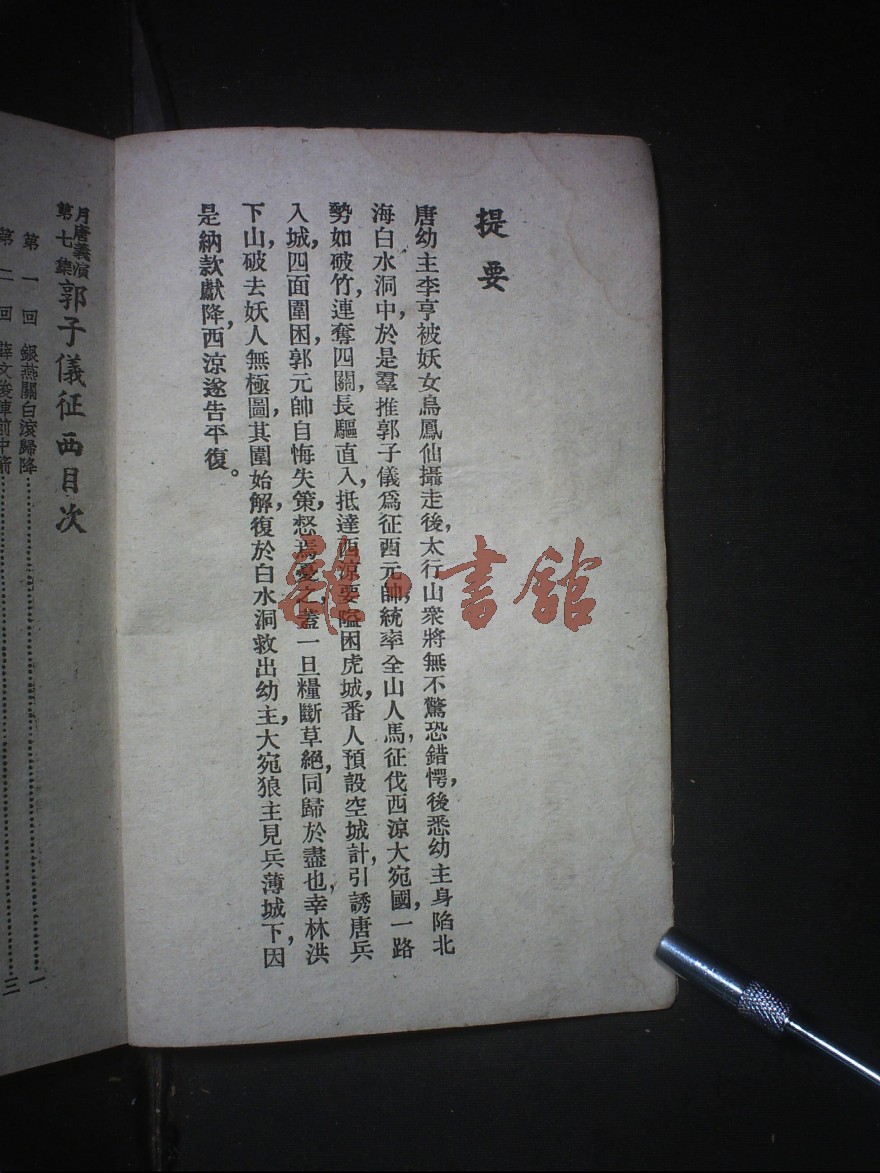 提要
唐幼主李亨被妖女烏鳳仙攝走後，太行山衆將無不驚恐錯愕，後悉幼主身陷北
海白水洞中，於是羣推郭子儀爲征西元帥，統率全山人馬，征伐西涼大宛國，一路
勢如破竹，連奪四關，長驅直入，抵達西涼要隘困虎城，番人預設空城計，引誘唐兵
入城，四面圍困，郭元帥自悔失策，惄焉憂之，蓋一旦糧斷草絕，同歸於盡也，幸林洪
下山，破去妖人無極圖，其圍始解，復於白水洞救出幼主，大宛狼主見兵薄城下，因
是納款獻降，西涼遂告平復。
月唐義演
第七集
郭子儀征西目次
第一回 銀燕關白滾歸降……一
第二回 薛文俊陣前中箭……三
書館